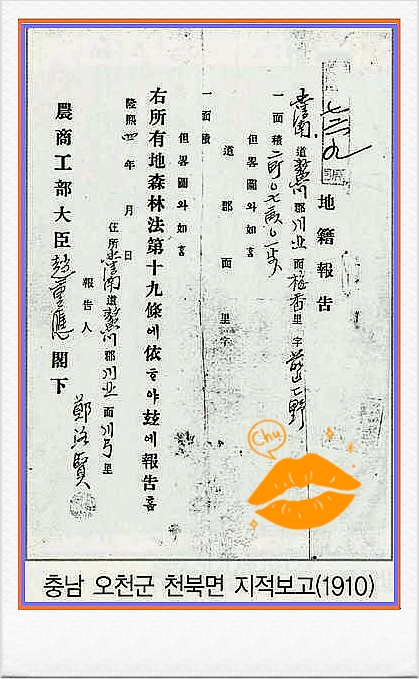 地籍報告
忠南道鰲川郡川北面
里
字
一面積
但畧圖와如홈
道郡面里字
一面積
但畧圖와如홈
右所有地森林法第十九條에依ᄒᆞ야玆에報告홈
隆熙四年月日
住所忠南道鰲川郡川北面川弓里
報告人鄭洛賢
農商工部大臣趙重應閣下
Chu
충남 오천군 천북면 지적보고(1910)